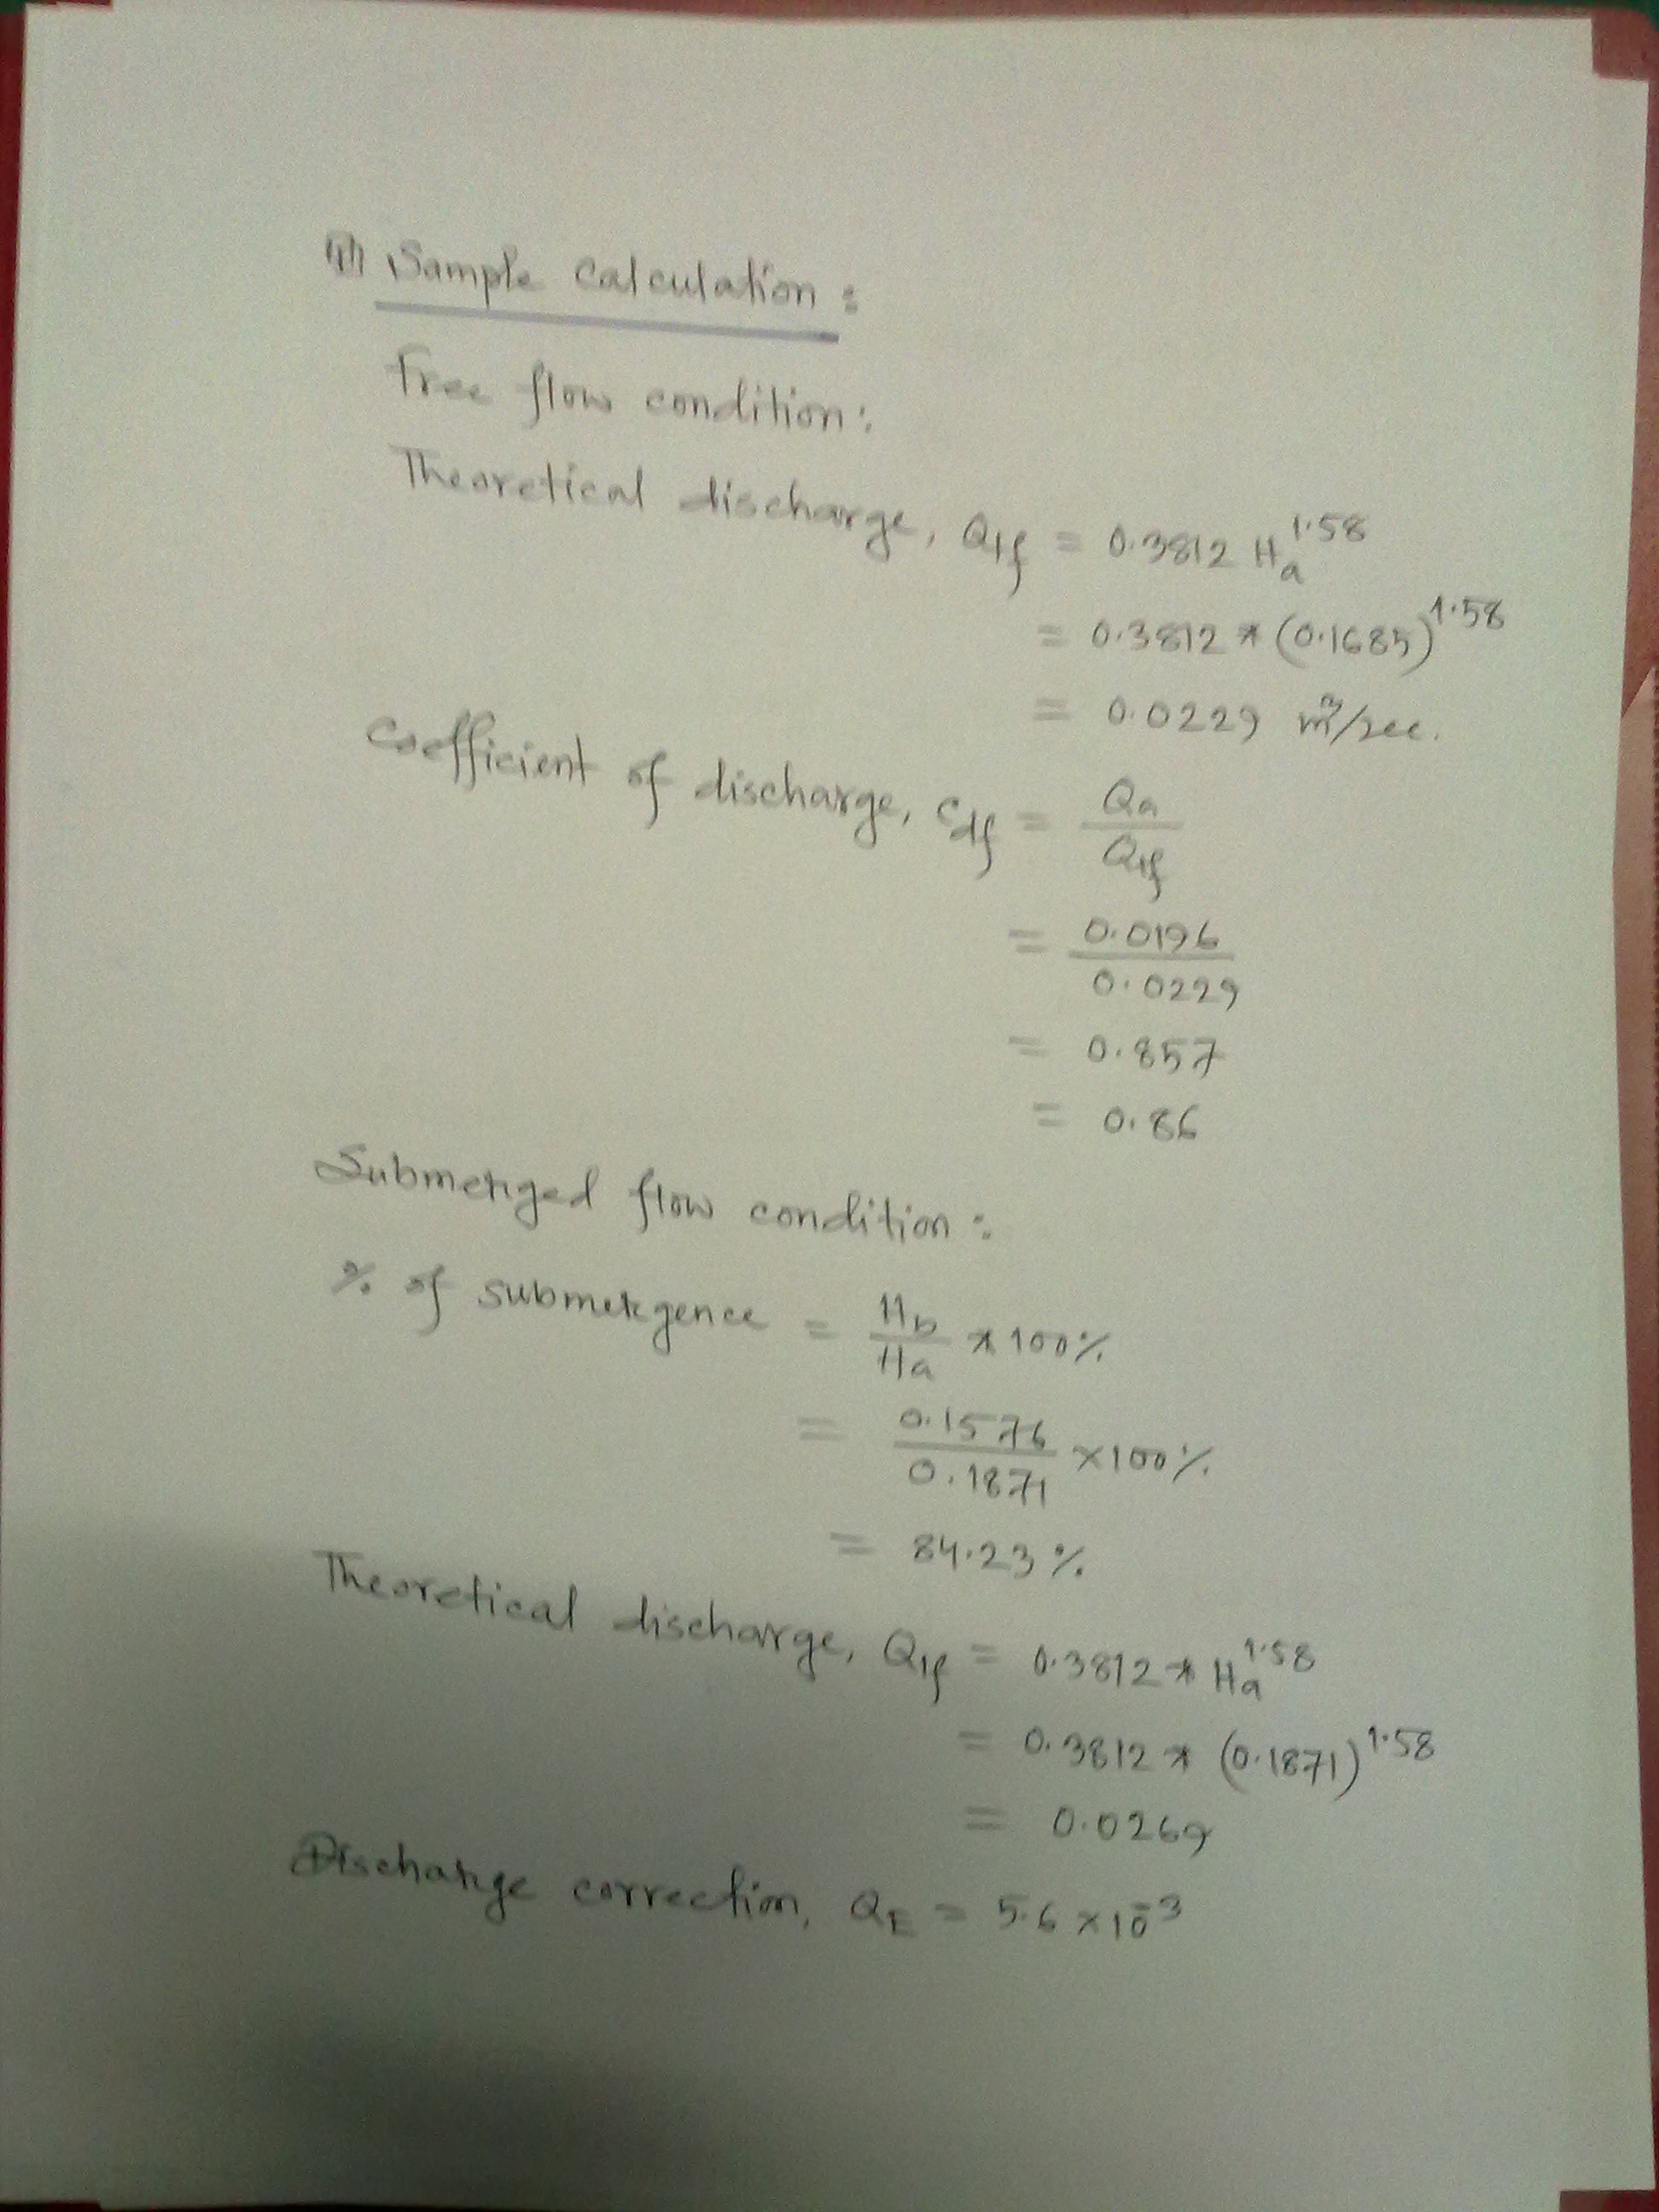 Sample calculation:
Free flow condition:
Theoretical discharge, Qtf = 0.3812 Ha^1.58
= 0.3812 * (0.1685)^1.58
= 0.0229 m³/sec.
Coefficient of discharge, Cdf = Qa / Qtf
= 0.0196 / 0.0229
= 0.857
= 0.86
Submerged flow condition:
% of submergence = Hb / Ha * 100%
= 0.1576 / 0.1871 × 100%
= 84.23%
Theoretical discharge, Qtf = 0.3812 * Ha^1.58
= 0.3812 * (0.1871)^1.58
= 0.0269
Discharge correction, QE = 5.6 × 10^-3